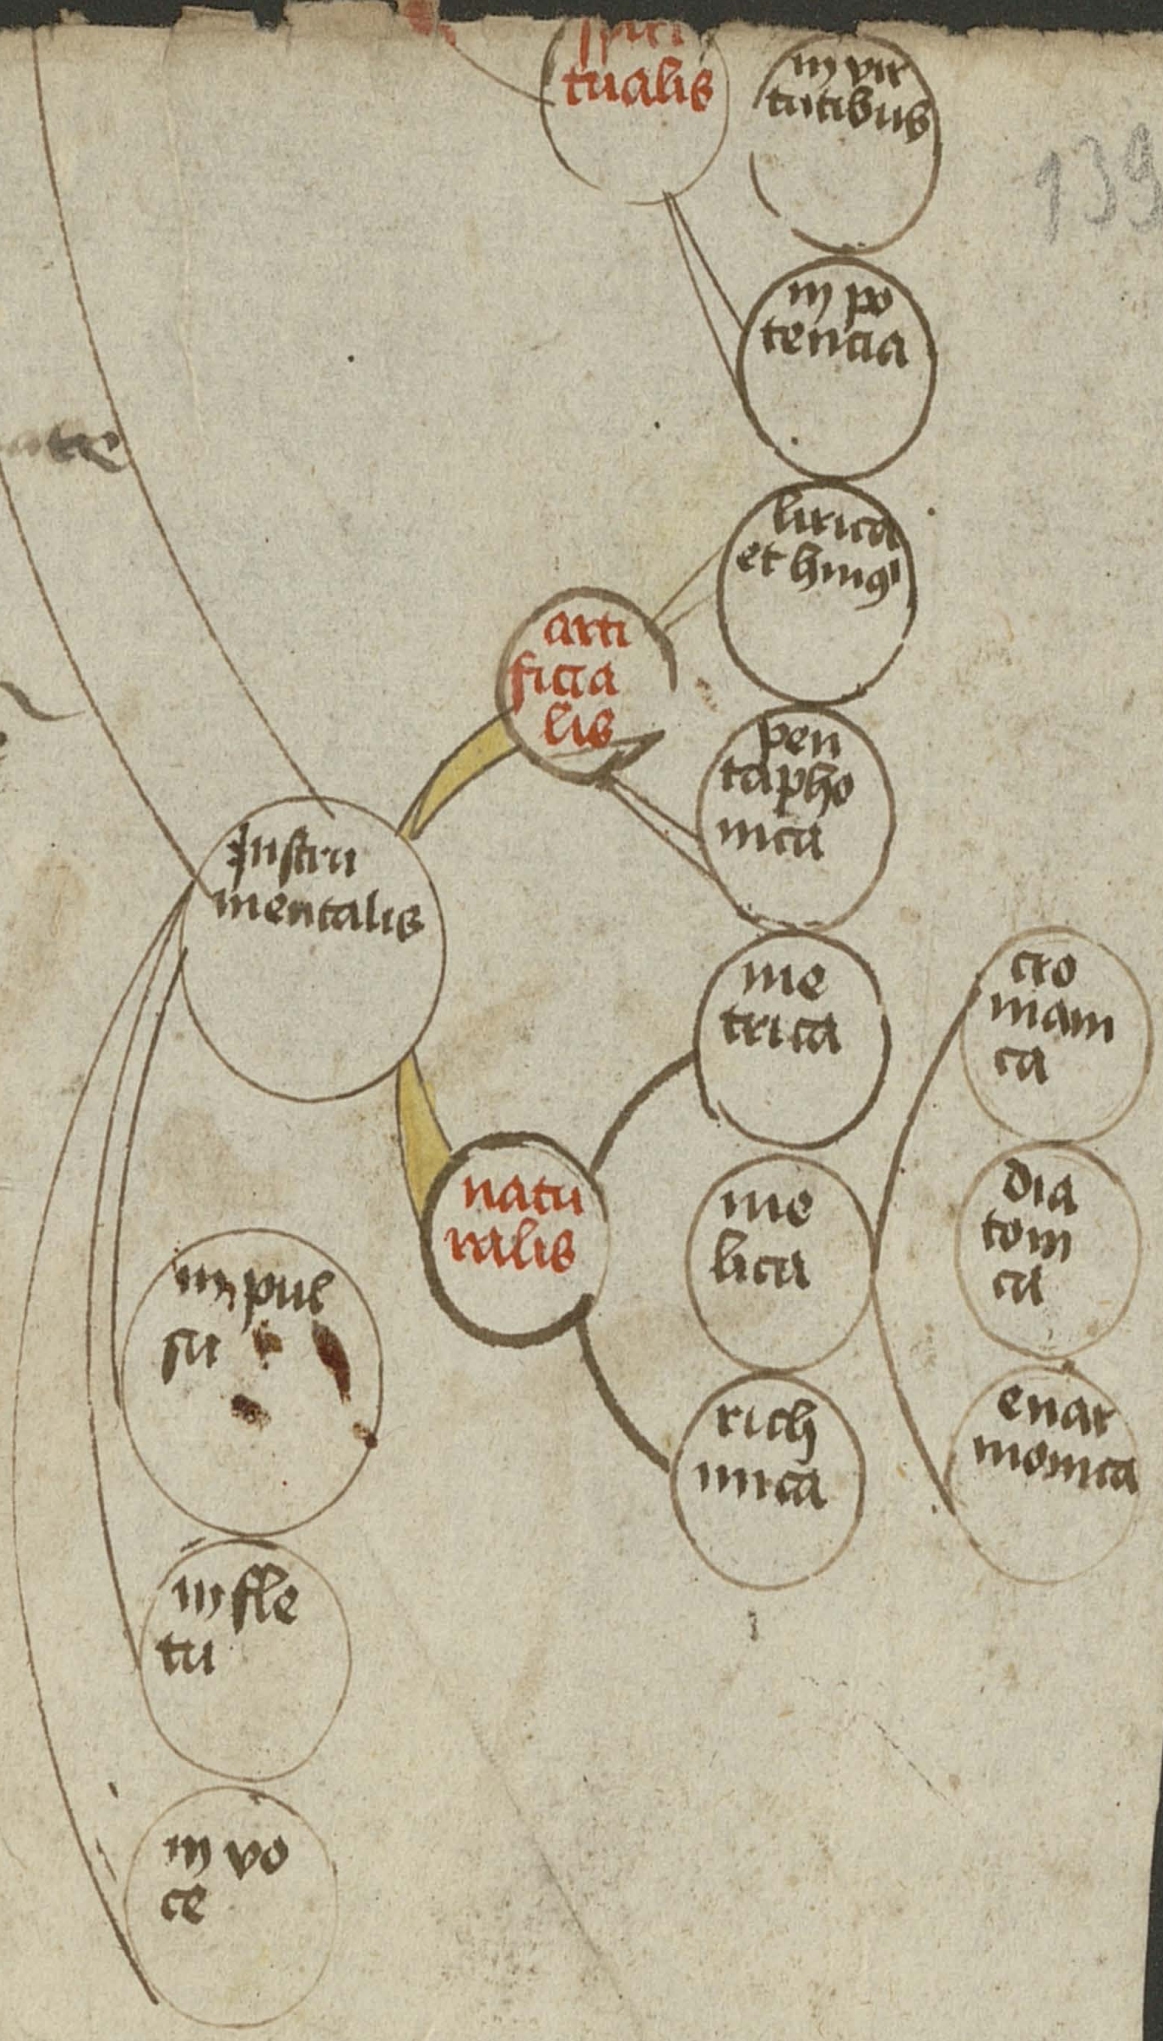 spiri
tualis
in vir
tutibus
139
in po
tencia
lirica
arti
ficia
lis
pen
tapho
nica
Instru
mentalis
me
trica
cro
mani
ca
natu
ralis
me
lica
dia
toni
ca
in pul
su
rich
mica
enar
monica
in fle
tu
in vo
ce